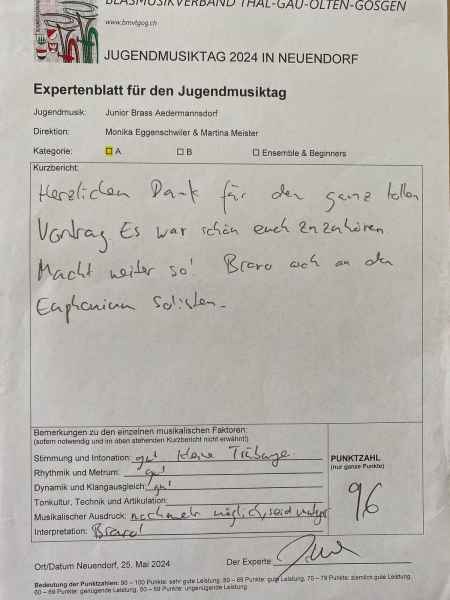 BLASMUSIKVERBAND THAL-GÄU-OLTEN-GÖSGEN
www.bmvtgog.ch
JUGENDMUSIKTAG 2024 IN NEUENDORF
Expertenblatt für den Jugendmusiktag
Jugendmusik: Junior Brass Aedermannsdorf
Direktion: Monika Eggenschwiler & Martina Meister
Kategorie: A B Ensemble & Beginners
Kurzbericht:
Herzlichen Dank für den ganz tollen
Vortrag Es war schön euch zuzuhören
Macht weiter so! Bravo auch an den
Euphonium Solisten.
Bemerkungen zu den einzelnen musikalischen Faktoren:
(sofern notwendig und im oben stehenden Kurzbericht nicht erwähnt!)
Stimmung und Intonation: gut kleine Trübung.
Rhythmik und Metrum: gut
Dynamik und Klangausgleich: gut
Tonkultur, Technik und Artikulation:
Musikalischer Ausdruck: noch mehr möglich, seid mutiger
Interpretation: Bravo!
PUNKTZAHL
(nur ganze Punkte)
96
Ort/Datum Neuendorf, 25. Mai 2024 Der Experte
Bedeutung der Punktzahlen: 90 – 100 Punkte: sehr gute Leistung, 80 – 89 Punkte: gute Leistung, 70 – 79 Punkte: ziemlich gute Leistung,
60 – 69 Punkte: genügende Leistung, 50 – 59 Punkte: ungenügende Leistung